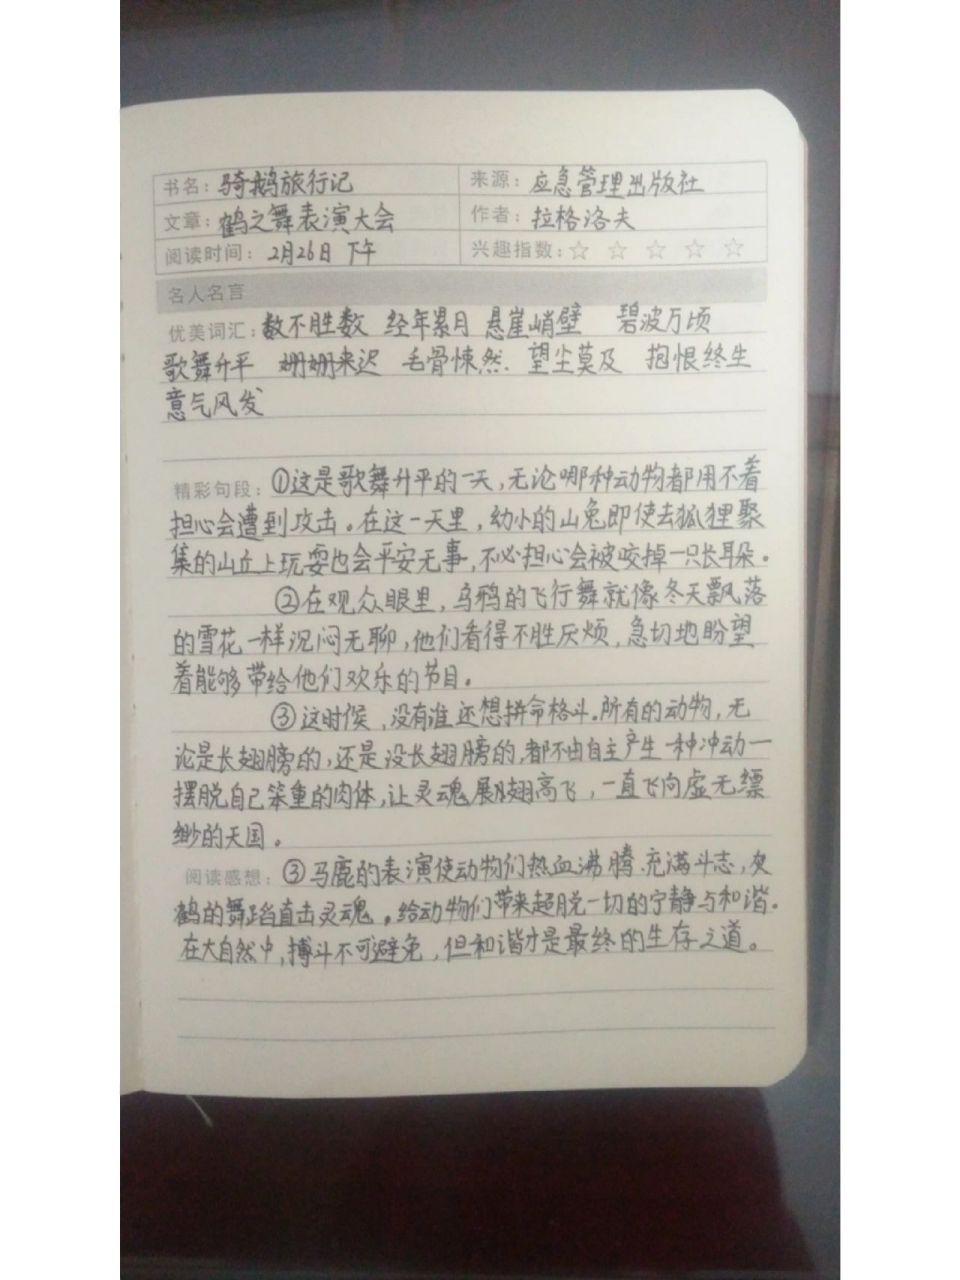 书名：骑鹅旅行记 来源：应急管理出版社
文章：鹤之舞表演大会 作者：拉格洛夫
阅读时间：2月26日 下午 兴趣指数：☆ ☆ ☆ ☆ ☆
名人名言
优美词汇：数不胜数 经年累月 悬崖峭壁 碧波万顷
歌舞升平 姗姗来迟 毛骨悚然. 望尘莫及 抱恨终生
意气风发
精彩句段：①这是歌舞升平的一天,无论哪种动物都用不着
担心会遭到攻击。在这一天里，幼小的山兔即使去狐狸聚
集的山丘上玩耍也会平安无事,不必担心会被咬掉一只长耳朵。
②在观众眼里，乌鸦的飞行舞就像冬天飘落
的雪花一样沉闷无聊,他们看得不胜厌烦,急切地盼望
着能够带给他们欢乐的节目。
③这时候,没有谁还想拼命格斗.所有的动物,无
论是长翅膀的,还是没长翅膀的,都不由自主产生一种冲动一
摆脱自己笨重的肉体,让灵魂展翅高飞,一直飞向虚无缥
缈的天国。
阅读感想：③马鹿的表演使动物们热血沸腾.充满斗志,灰
鹤的舞蹈直击灵魂。给动物们带来超脱一切的宁静与和谐.
在大自然中,搏斗不可避免,但和谐才是最终的生存之道。